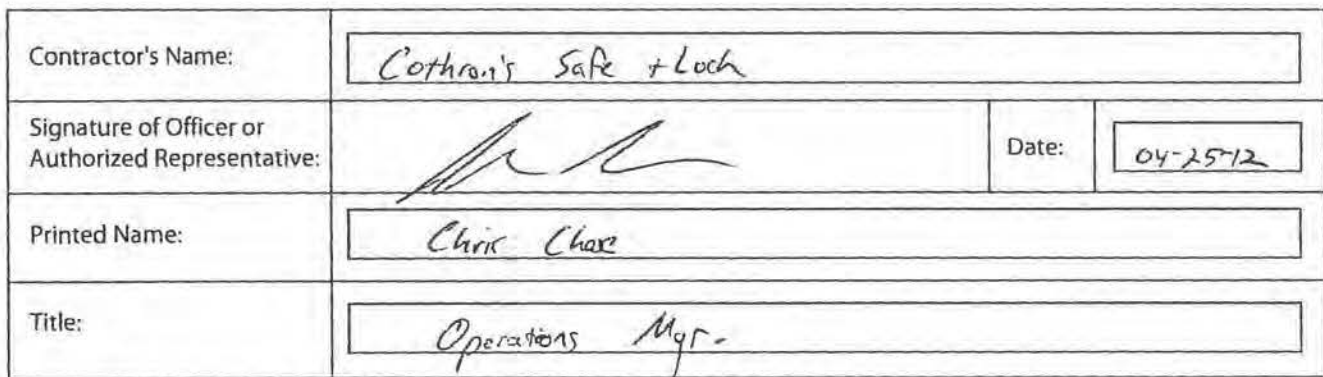 Contractor's Name: Cothron's Safe + Lock
Signature of Officer or
Authorized Representative:
Date: 04-25-12
Printed Name: Chris Chase
Title: Operations Mgr.